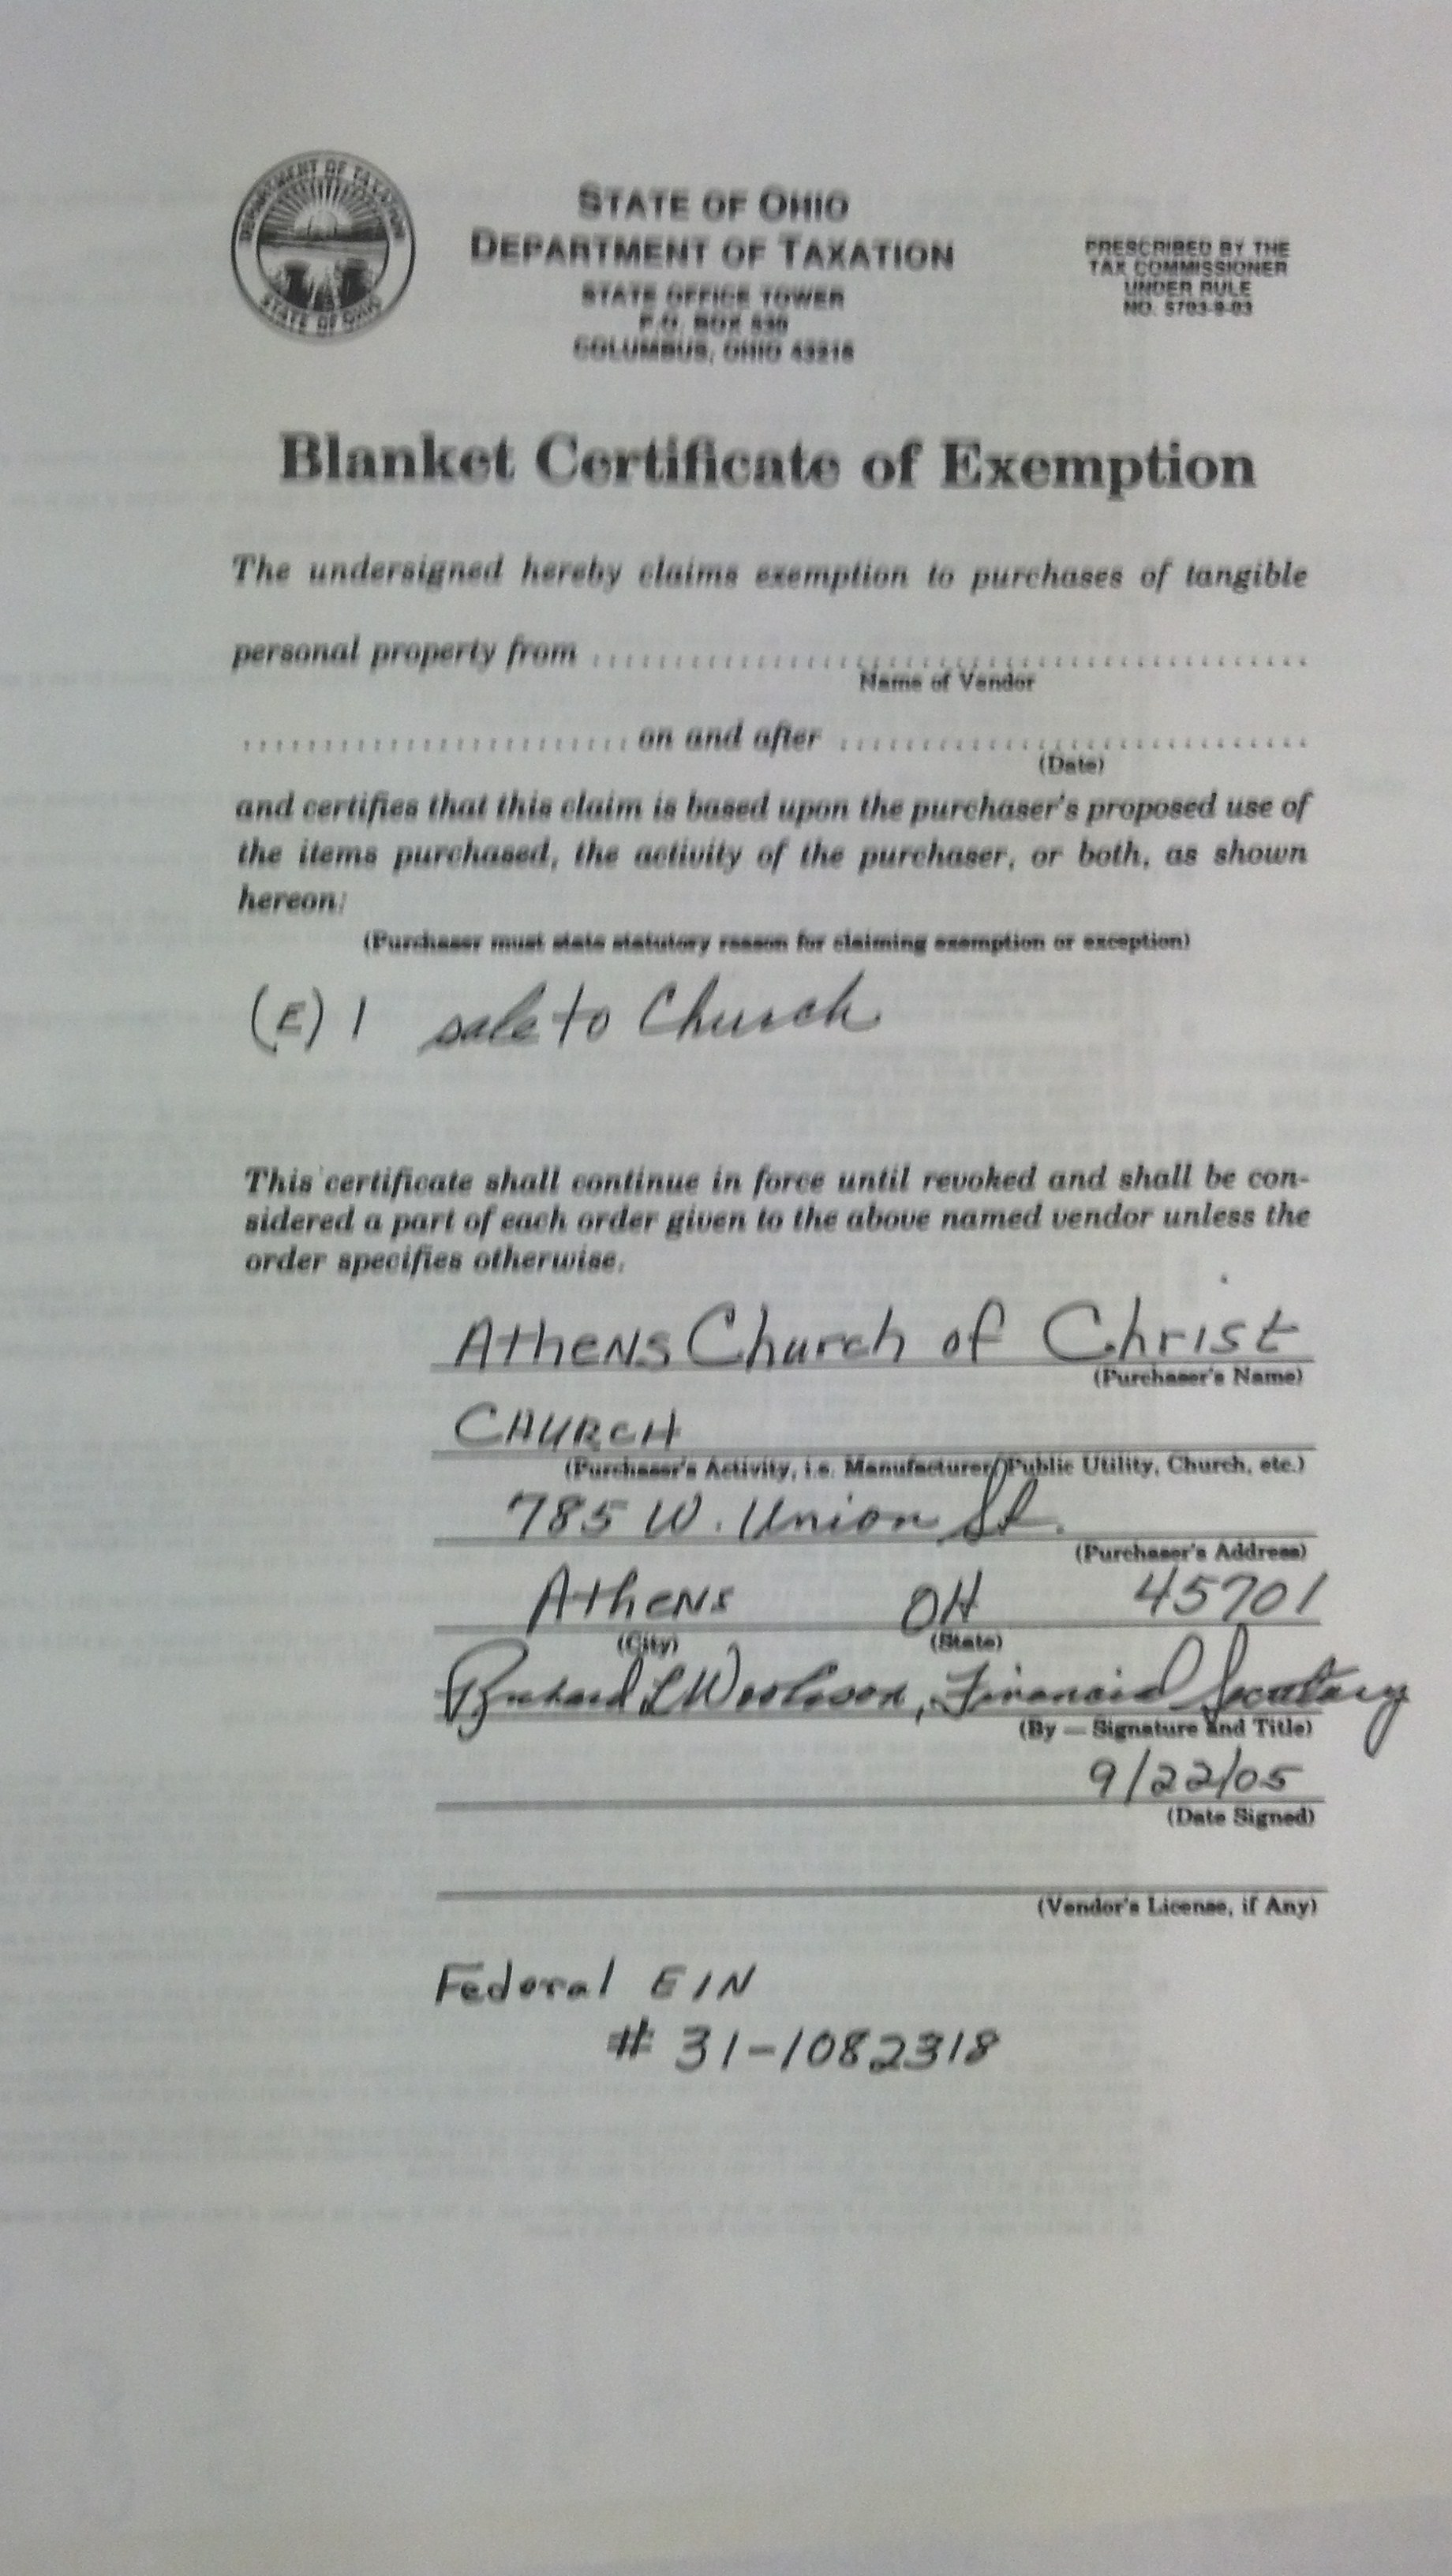 DEPARTMENT OF TAXATION
STATE OF OHIO
STATE OF OHIO
DEPARTMENT OF TAXATION
STATE OFFICE TOWER
P.O. BOX 530
COLUMBUS, OHIO 43216
PRESCRIBED BY THE
TAX COMMISSIONER
UNDER RULE
NO. 5703-9-03
Blanket Certificate of Exemption
The undersigned hereby claims exemption to purchases of tangible
personal property from
Name of Vendor
on and after
(Date)
and certifies that this claim is based upon the purchaser's proposed use of
the items purchased, the activity of the purchaser, or both, as shown
hereon:
(Purchaser must state statutory reason for claiming exemption or exception)
(E) 1 sale to Church
This certificate shall continue in force until revoked and shall be con-
sidered a part of each order given to the above named vendor unless the
order specifies otherwise.
Athens Church of Christ
(Purchaser's Name)
CHURCH
(Purchaser's Activity, i.e. Manufacturer, Public Utility, Church, etc.)
785 W. Union St.
(Purchaser's Address)
Athens OH 45701
(City) (State)
Richard L, Financial Secretary
(By — Signature and Title)
9/22/05
(Date Signed)
(Vendor's License, if Any)
Federal EIN
# 31-1082318